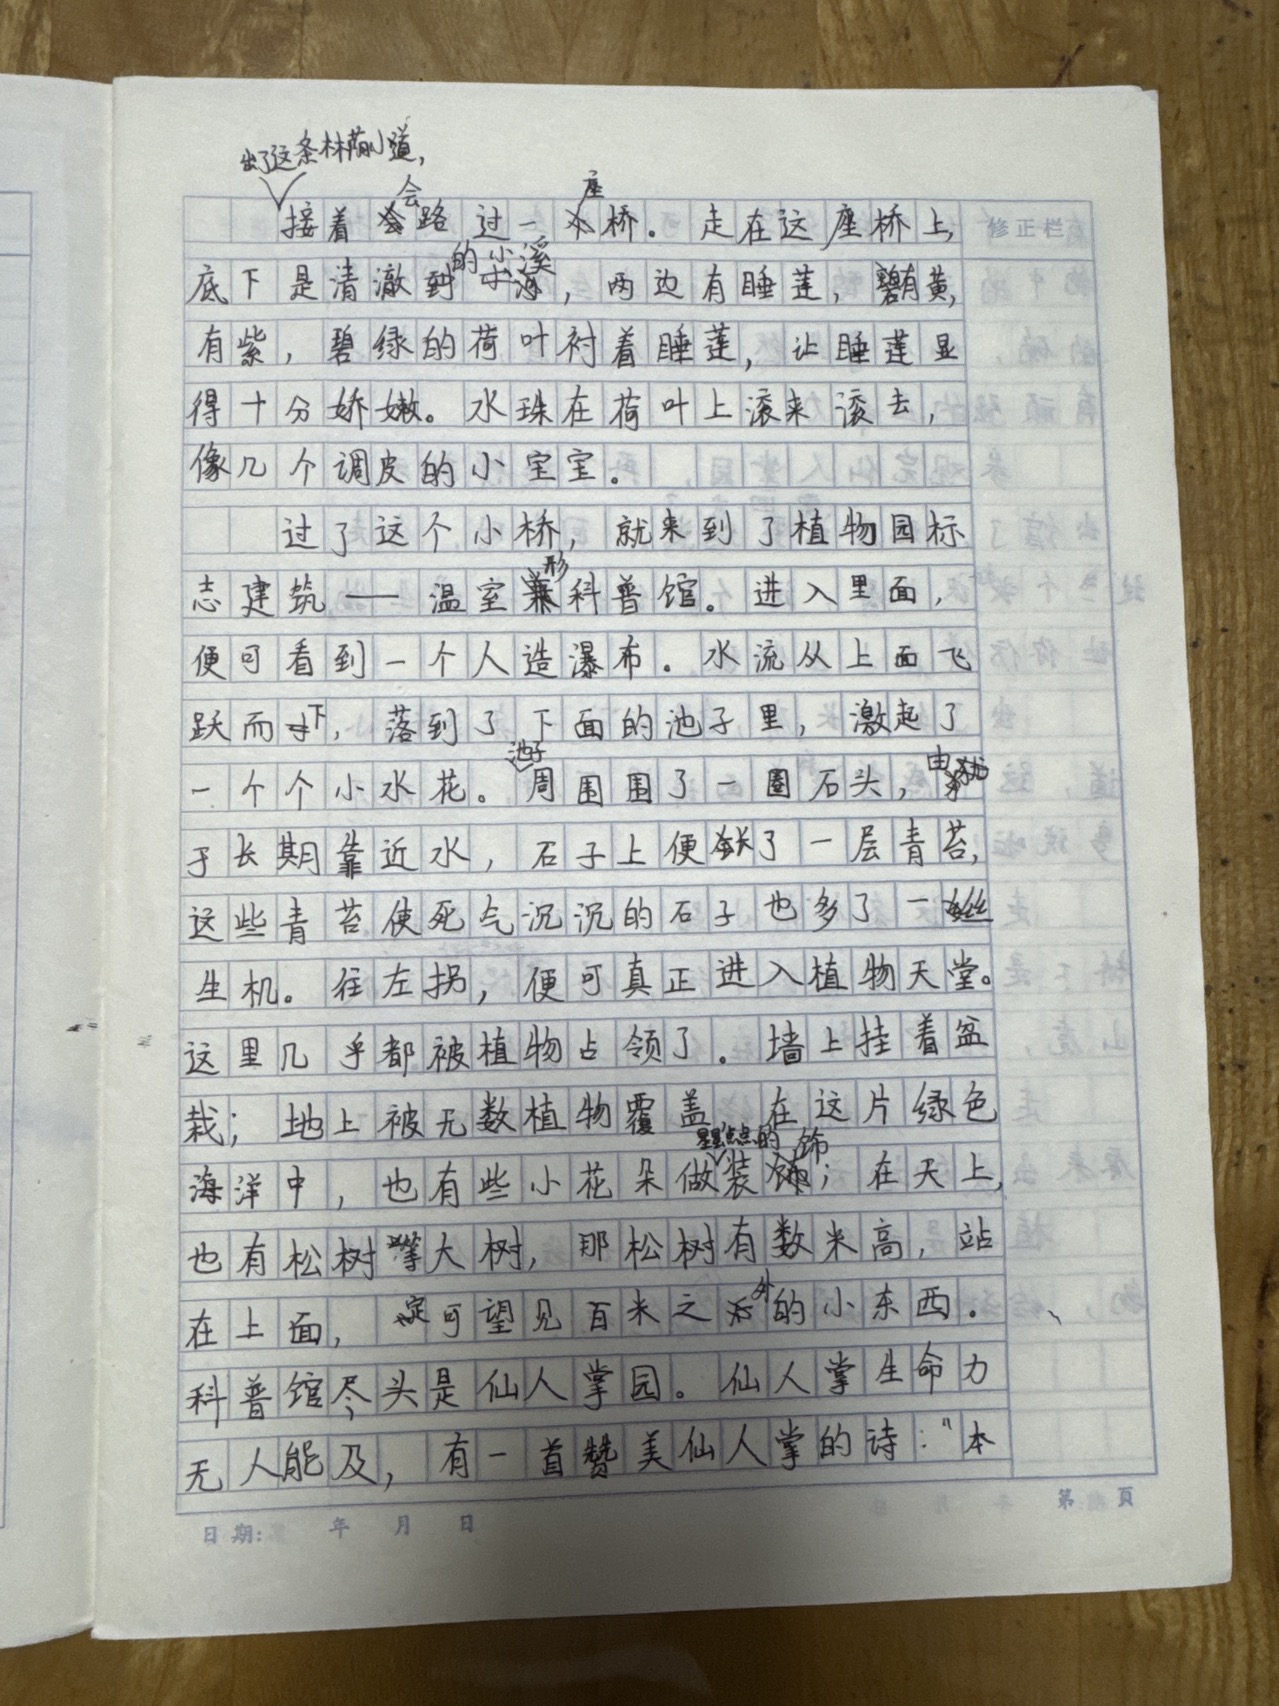 出了这条林荫小道，
会 座
接着 路过一 桥。走在这座桥上，
的小溪
底下是清澈 ，两边有睡莲，有黄，
有紫，碧绿的荷叶衬着睡莲，让睡莲显
得十分娇嫩。水珠在荷叶上滚来滚去，
像几个调皮的小宝宝。
过了这个小桥，就来到了植物园标
形
志建筑——温室 科普馆。进入里面，
便可看到一个人造瀑布。水流从上面飞
跃而下，落到了下面的池子里，激起了
池子 由
一个个小水花。周围围了一圈石头，
于长期靠近水，石子上便长了一层青苔，
这些青苔使死气沉沉的石子也多了一丝
生机。往左拐，便可真正进入植物天堂。
这里几乎都被植物占领了。墙上挂着盆
栽；地上被无数植物覆盖。在这片绿色
星星点点的 饰
海洋中，也有些小花朵做装 ；在天上，
也有松树等大树，那松树有数米高，站
外
在上面，定可望见百米之 的小东西。
科普馆尽头是仙人掌园。仙人掌生命力
无人能及，有一首赞美仙人掌的诗：“本
修正栏
日期： 年 月 日
第 頁